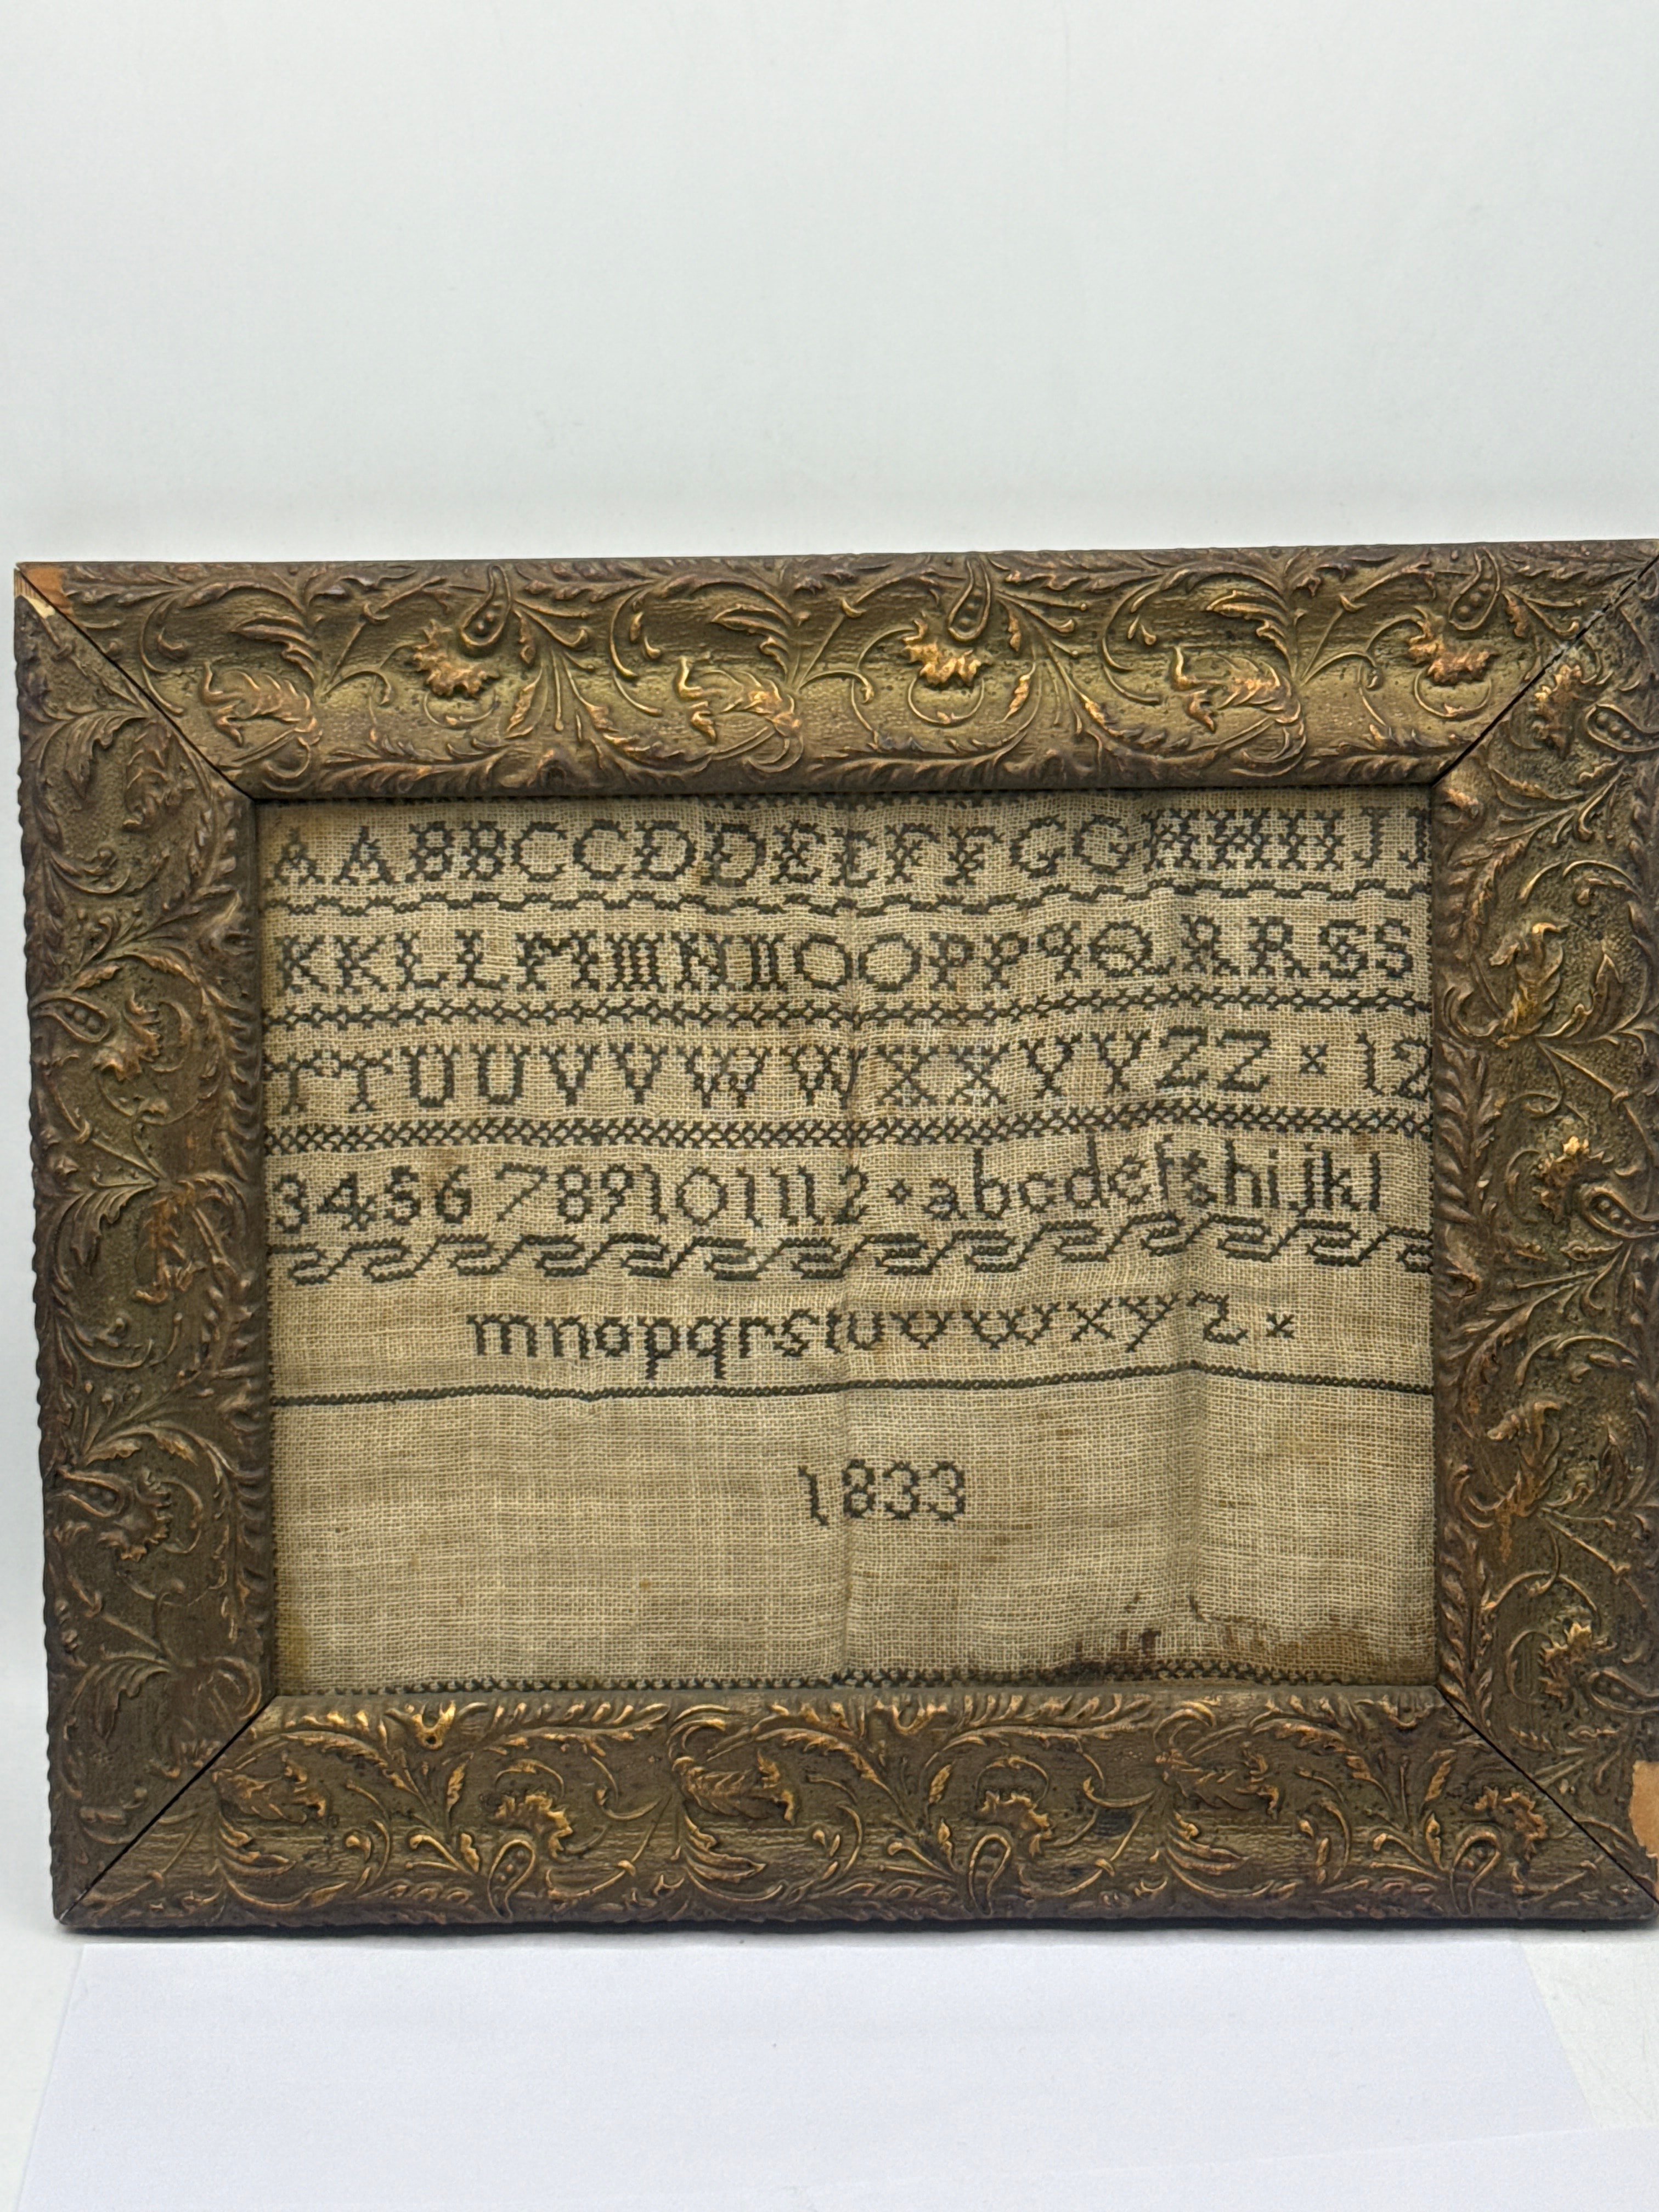 AABBCCDDEEFFGGHHHJJ
KKLLMMNNOOPPQQRRSS
TTUUVVWWXXYYZZ × 12
3456789101112 abcdefghijkl
mnopqrstuvwxyz ×
1833